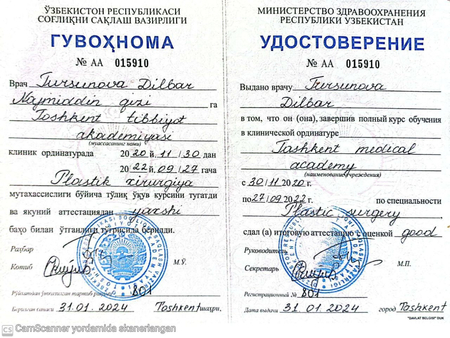 ЎЗБЕКИСТОН РЕСПУБЛИКАСИ
СОҒЛИҚНИ САҚЛАШ ВАЗИРЛИГИ
ГУВОҲНОМА
№ АА 015910
Врач Tursunova Dilbar
Najmiddin qizi га
Toshkent tibbiyot
akademiyasi
(муассасанинг номи)
клиник ординатурада 2020 й. 11 / 30 дан
2022 й. 09 / 27 гача
Plastik xirurgiya
мутахассислиги бўйича тўлиқ ўқув курсини тугатди
ва якуний аттестациядан yaxshi
баҳо билан ўтганлиги тўғрисида берилди.
Раҳбар
Котиб
М.Ў.
Рўйхатдан ўтказилган тартиб рақами 801
Берилган санаси 31.01.2024 Toshkent шаҳри,
МИНИСТЕРСТВО ЗДРАВООХРАНЕНИЯ
РЕСПУБЛИКИ УЗБЕКИСТАН
УДОСТОВЕРЕНИЕ
№ АА 015910
Выдано врачу Tursunova
Dilbar
в том, что он (она), завершив полный курс обучения
в клинической ординатуре
Tashkent medical
academy
(наименование учреждения)
с 30/11 2020 г.
по 27/09 2022 г. по специальности
Plastic surgery
сдал (а) итоговую аттестацию с оценкой good
Руководитель
Секретарь
М.П.
Регистрационный № 801
Дата выдачи 31.01.2024 город Toshkent
CamScanner yordamida skanerlangan